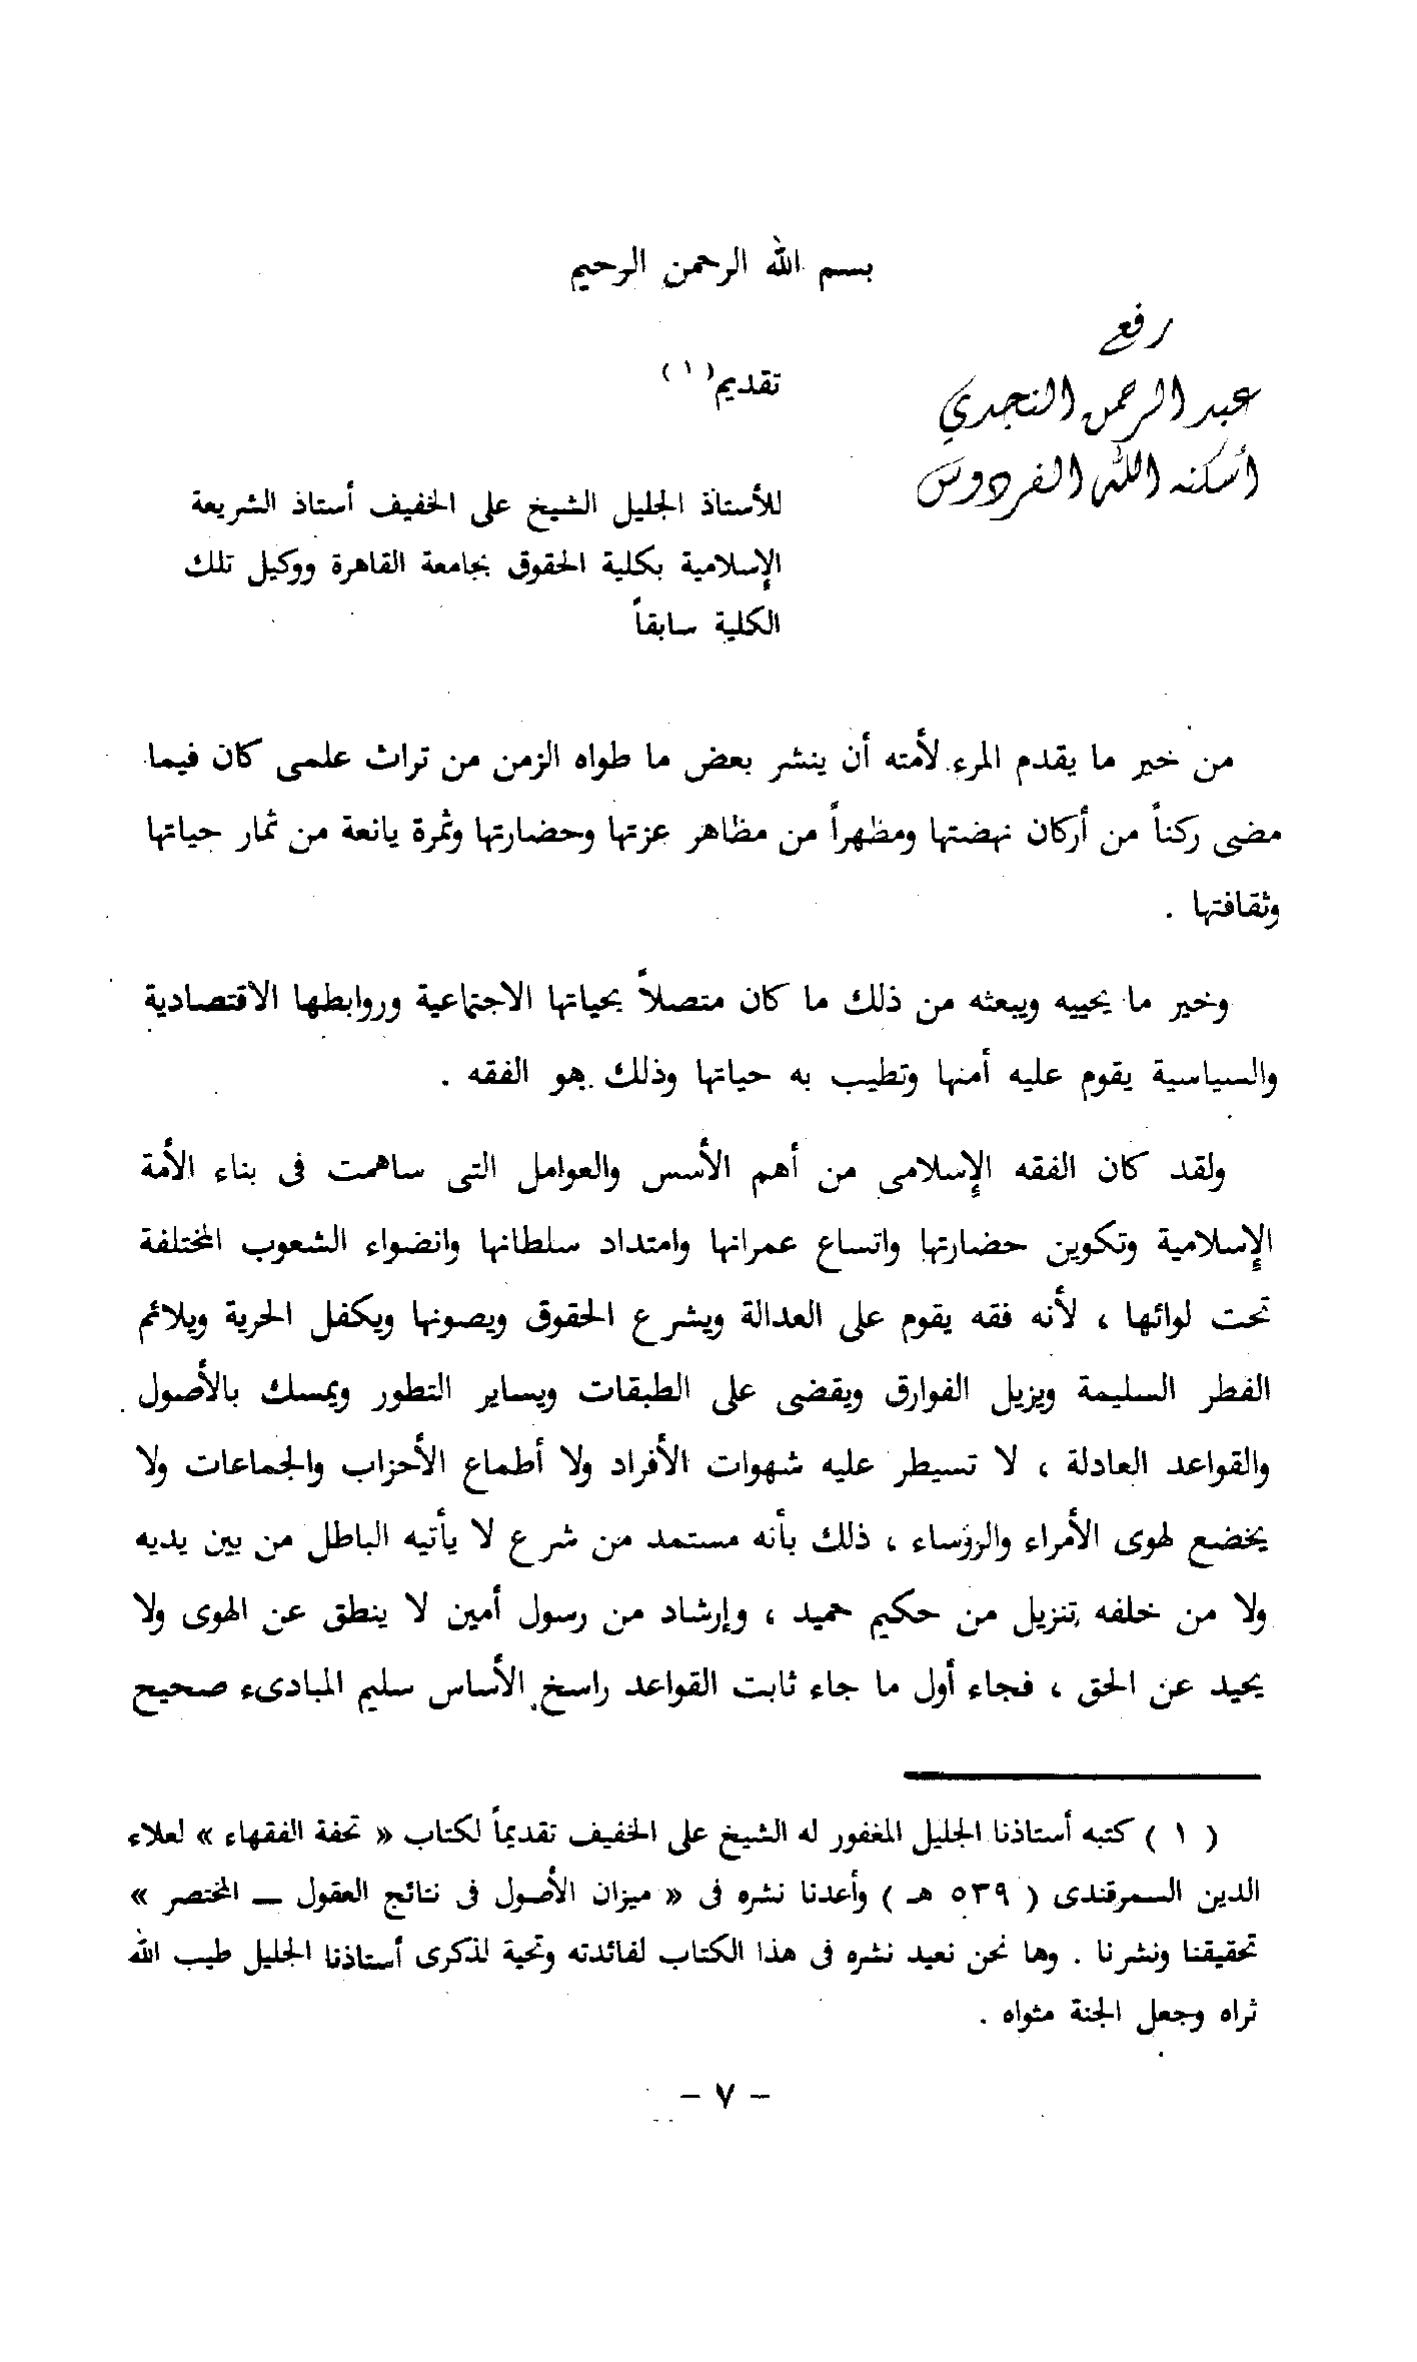 بسم الله الرحمن الرحيم
رفع
عبد الرحمن النجدي
أسكنه الله الفردوس
تقديم(١)
للأستاذ الجليل الشيخ على الخفيف أستاذ الشريعة
الإسلامية بكلية الحقوق بجامعة القاهرة ووكيل تلك
الكلية سابقاً
من خير ما يقدم المرء لأمته أن ينشر بعض ما طواه الزمن من تراث علمى كان فيما
مضى ركناً من أركان نهضتها ومظهراً من مظاهر عزتها وحضارتها وثمرة يانعة من ثمار حياتها
وثقافتها .
وخير ما يحييه ويبعثه من ذلك ما كان متصلاً بحياتها الاجتماعية وروابطها الاقتصادية
والسياسية يقوم عليه أمنها وتطيب به حياتها وذلك هو الفقه .
ولقد كان الفقه الإسلامى من أهم الأسس والعوامل التى ساهمت فى بناء الأمة
الإسلامية وتكوين حضارتها واتساع عمرانها وامتداد سلطانها وانضواء الشعوب المختلفة
تحت لوائها ، لأنه فقه يقوم على العدالة ويشرع الحقوق ويصونها ويكفل الحرية ويلائم
الفطر السليمة ويزيل الفوارق ويقضى على الطبقات ويساير التطور ويمسك بالأصول
والقواعد العادلة ، لا تسيطر عليه شهوات الأفراد ولا أطماع الأحزاب والجماعات ولا
يخضع لهوى الأمراء والرؤساء ، ذلك بأنه مستمد من شرع لا يأتيه الباطل من بين يديه
ولا من خلفه تنزيل من حكيم حميد ، وإرشاد من رسول أمين لا ينطق عن الهوى ولا
يحيد عن الحق ، فجاء أول ما جاء ثابت القواعد راسخ الأساس سليم المبادىء صحيح
( ١ ) كتبه أستاذنا الجليل المغفور له الشيخ على الخفيف تقديماً لكتاب « تحفة الفقهاء » لعلاء
الدين السمرقندى ( ٥٣٩ هـ ) وأعدنا نشره فى « ميزان الأصول فى نتائج العقول ــ المختصر »
تحقيقنا ونشرنا . وها نحن نعيد نشره فى هذا الكتاب لفائدته وتحية لذكرى أستاذنا الجليل طيب الله
ثراه وجعل الجنة مثواه .
– ٧ –